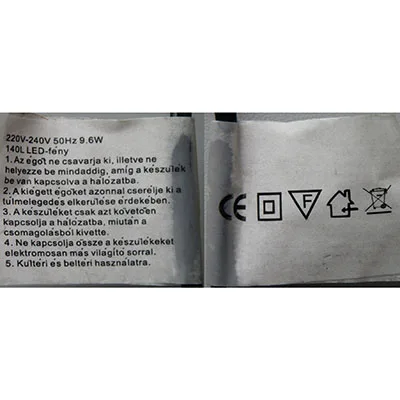 220V-240V 50Hz 9.6W
140L LED-fény
1. Az égőt ne csavarja ki, illetve ne
helyezze be mindaddig, amíg a készülék
be van kapcsolva a hálózatba.
2. A kiégett égőket azonnal cserélje ki a
túlmelegedés elkerülése érdekében.
3. A készüléket csak azt követően
kapcsolja a hálózatba, miután a
csomagolásból kivette.
4. Ne kapcsolja össze a készülékeket
elektromosan más világító sorral.
5. Kültéri és beltéri használatra.
CE
F